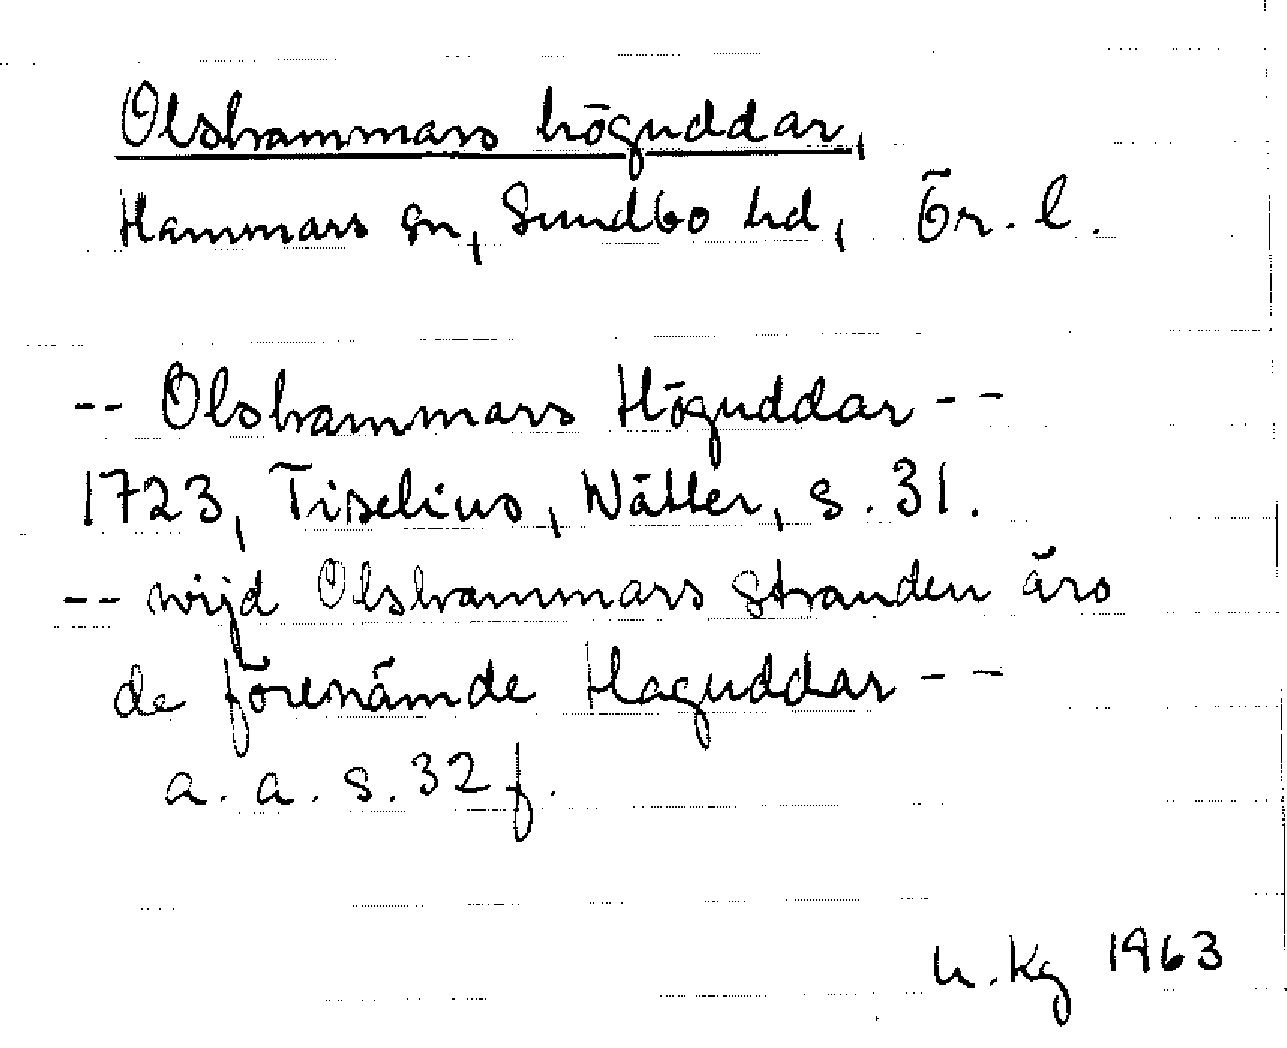 Olshammars höguddar,
Hammars sn, Sundbo hd, Ör. l.
-- Olshammars Höguddar --
1723, Tiselius, Wätter, s. 31.
-- wijd Olshammars stranden äro
de förenämde Haguddar --
a. a. s. 32 f.
h. Kg 1963